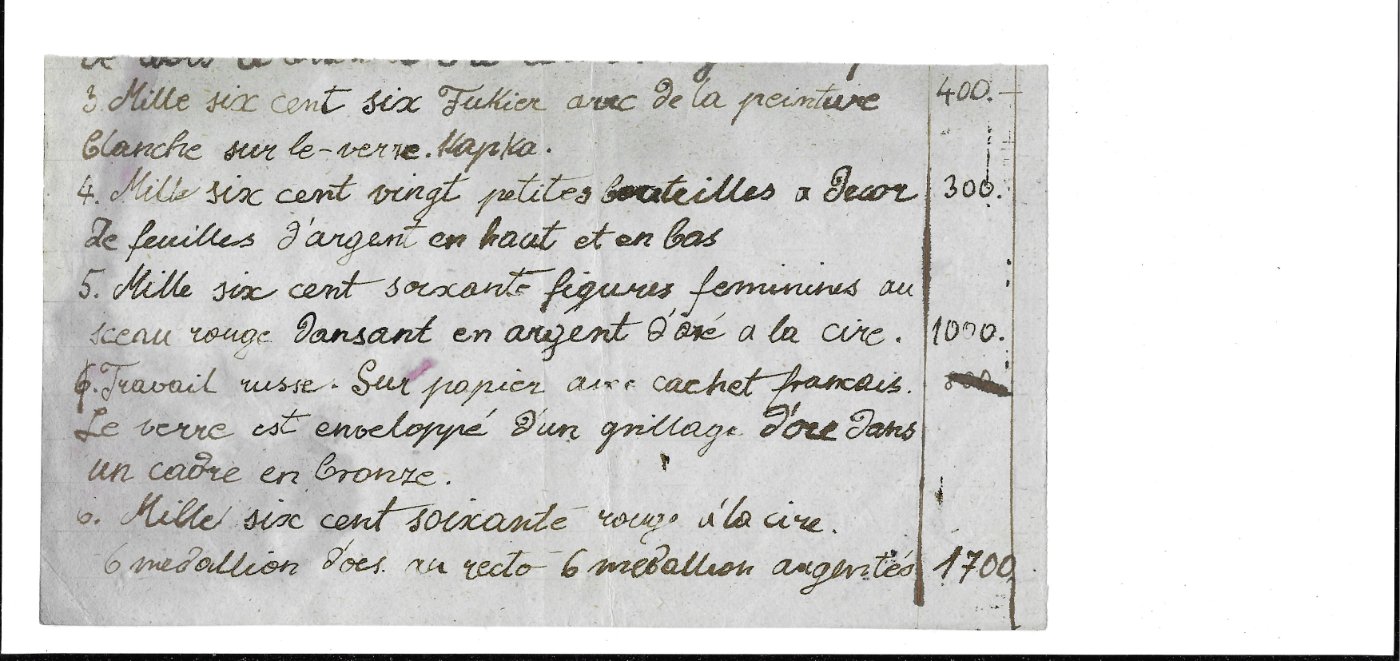 3. Mille six cent six Fukier avec de la peinture 400.-
blanche sur le-verre. Kapka.
4. Mille six cent vingt petites bouteilles a decor 300.
de feuilles d'argent en haut et en bas
5. Mille six cent soixante figures feminines au
sceau rouge dansant en argent d'oré a la cire. 1000.
6. Travail russe. Sur papier avec cachet francais.
Le verre est enveloppé d'un grillage d'ore dans
un cadre en bronze.
6. Mille six cent soixante rouge à la cire.
6 medallion d'ores au recto 6 medallion argentés 1700